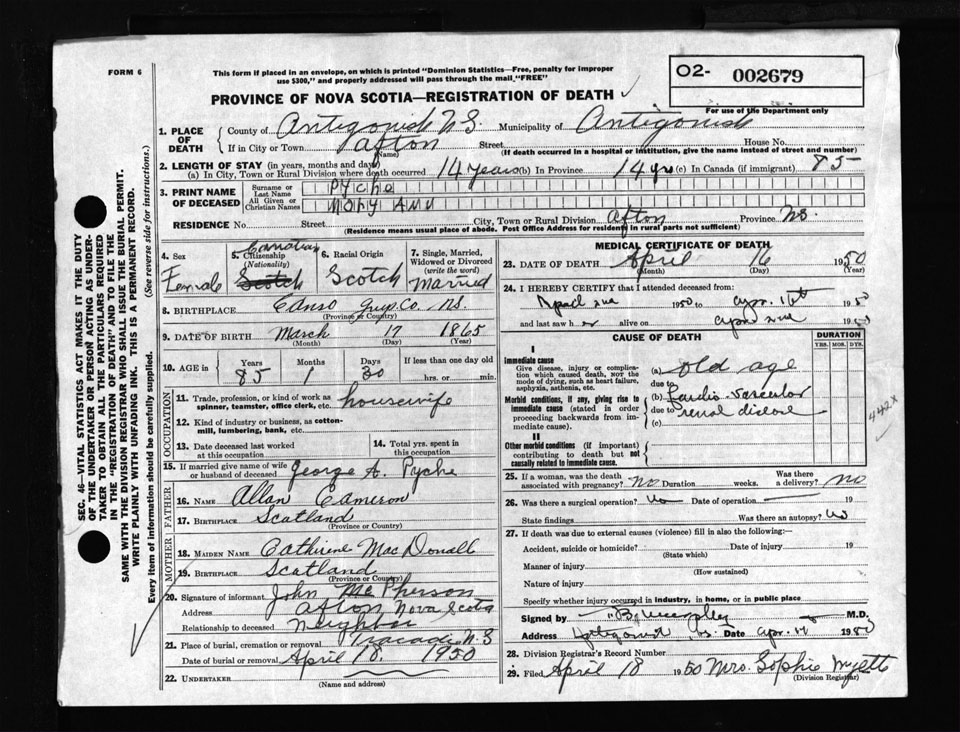 FORM 6
This form if placed in an envelope, on which is printed "Dominion Statistics—Free, penalty for improper
use $300," and properly addressed will pass through the mail "FREE"
O2- 002679
PROVINCE OF NOVA SCOTIA—REGISTRATION OF DEATH
For use of the Department only
1. PLACE OF DEATH
County of Antigonish N.S. Municipality of Antigonish
If in City or Town Afton Street House No.
(Name) (If death occurred in a hospital or institution, give the name instead of street and number)
2. LENGTH OF STAY (in years, months and days)
(a) In City, Town or Rural Division where death occurred 14 years (b) In Province 14 yrs (c) In Canada (if immigrant) 85
3. PRINT NAME OF DECEASED
Surname or Last Name Pyche
All Given or Christian Names Mary Ann
RESIDENCE No. Street City, Town or Rural Division Afton Province N.S.
(Residence means usual place of abode. Post Office Address for residency in rural parts not sufficient)
4. Sex Female
5. Citizenship (Nationality) Canadian Scotch
6. Racial Origin Scotch
7. Single, Married, Widowed or Divorced (write the word) Married
8. BIRTHPLACE Canso Guy. Co., N.S.
(Province or Country)
9. DATE OF BIRTH March 17 1865
(Month) (Day) (Year)
10. AGE IN Years Months Days If less than one day old
85 1 30 hrs. or min.
OCCUPATION
11. Trade, profession, or kind of work as spinner, teamster, office clerk, etc. housewife
12. Kind of industry or business, as cotton-mill, lumbering, bank, etc.
13. Date deceased last worked at this occupation
14. Total yrs. spent in this occupation
15. If married give name of wife or husband of deceased George A. Pyche
FATHER
16. NAME Allan Cameron
17. BIRTHPLACE Scotland
(Province or Country)
MOTHER
18. MAIDEN NAME Cathirene MacDonall
19. BIRTHPLACE Scotland
(Province or Country)
20. Signature of informant John McPherson
Address Afton Nova Scotia
Relationship to deceased Neighbor
21. Place of burial, cremation or removal Tracadie N.S
Date of burial or removal April 18, 1950
22. UNDERTAKER
(Name and address)
MEDICAL CERTIFICATE OF DEATH
23. DATE OF DEATH April 16 1950
(Month) (Day) (Year)
24. I HEREBY CERTIFY that I attended deceased from:
April 2nd 1950 to Apr. 1950
and last saw her alive on Apr 2nd 1950
CAUSE OF DEATH
DURATION
YRS. MOS. DYS.
I
Immediate cause
Give disease, injury or complication which caused death, NOT the mode of dying, such as heart failure, asphyxia, asthenia, etc.
(a) old age
due to
Morbid conditions, if any, giving rise to immediate cause (stated in order proceeding backwards from immediate cause).
(b) Cardio-vascular
due to renal disease
(c)
442X
II
Other morbid conditions (if important) contributing to death but not causally related to immediate cause.
25. If a woman, was the death associated with pregnancy? No Duration weeks. Was there a delivery? no
26. Was there a surgical operation? No Date of operation 19
State findings Was there an autopsy? No
27. If death was due to external causes (violence) fill in also the following:—
Accident, suicide or homicide? Date of injury 19
(State which)
Manner of injury
(How sustained)
Nature of injury
Specify whether injury occurred in industry, in home, or in public place
Signed by M.D.
Address Antigonish N.S. Date Apr. 17 1950
28. Division Registrar's Record Number
29. Filed April 18 1950 Mrs. Sophie Myette
(Division Registrar)
SEC. 46—VITAL STATISTICS ACT MAKES IT THE DUTY
OF THE UNDERTAKER OR PERSON ACTING AS UNDER-
TAKER TO OBTAIN ALL THE PARTICULARS REQUIRED
IN THE "REGISTRATION OF DEATH" AND TO FILE THE
SAME WITH THE DIVISION REGISTRAR WHO SHALL ISSUE THE BURIAL PERMIT.
WRITE PLAINLY WITH UNFADING INK. THIS IS A PERMANENT RECORD.
Every item of information should be carefully supplied. (See reverse side for instructions.)